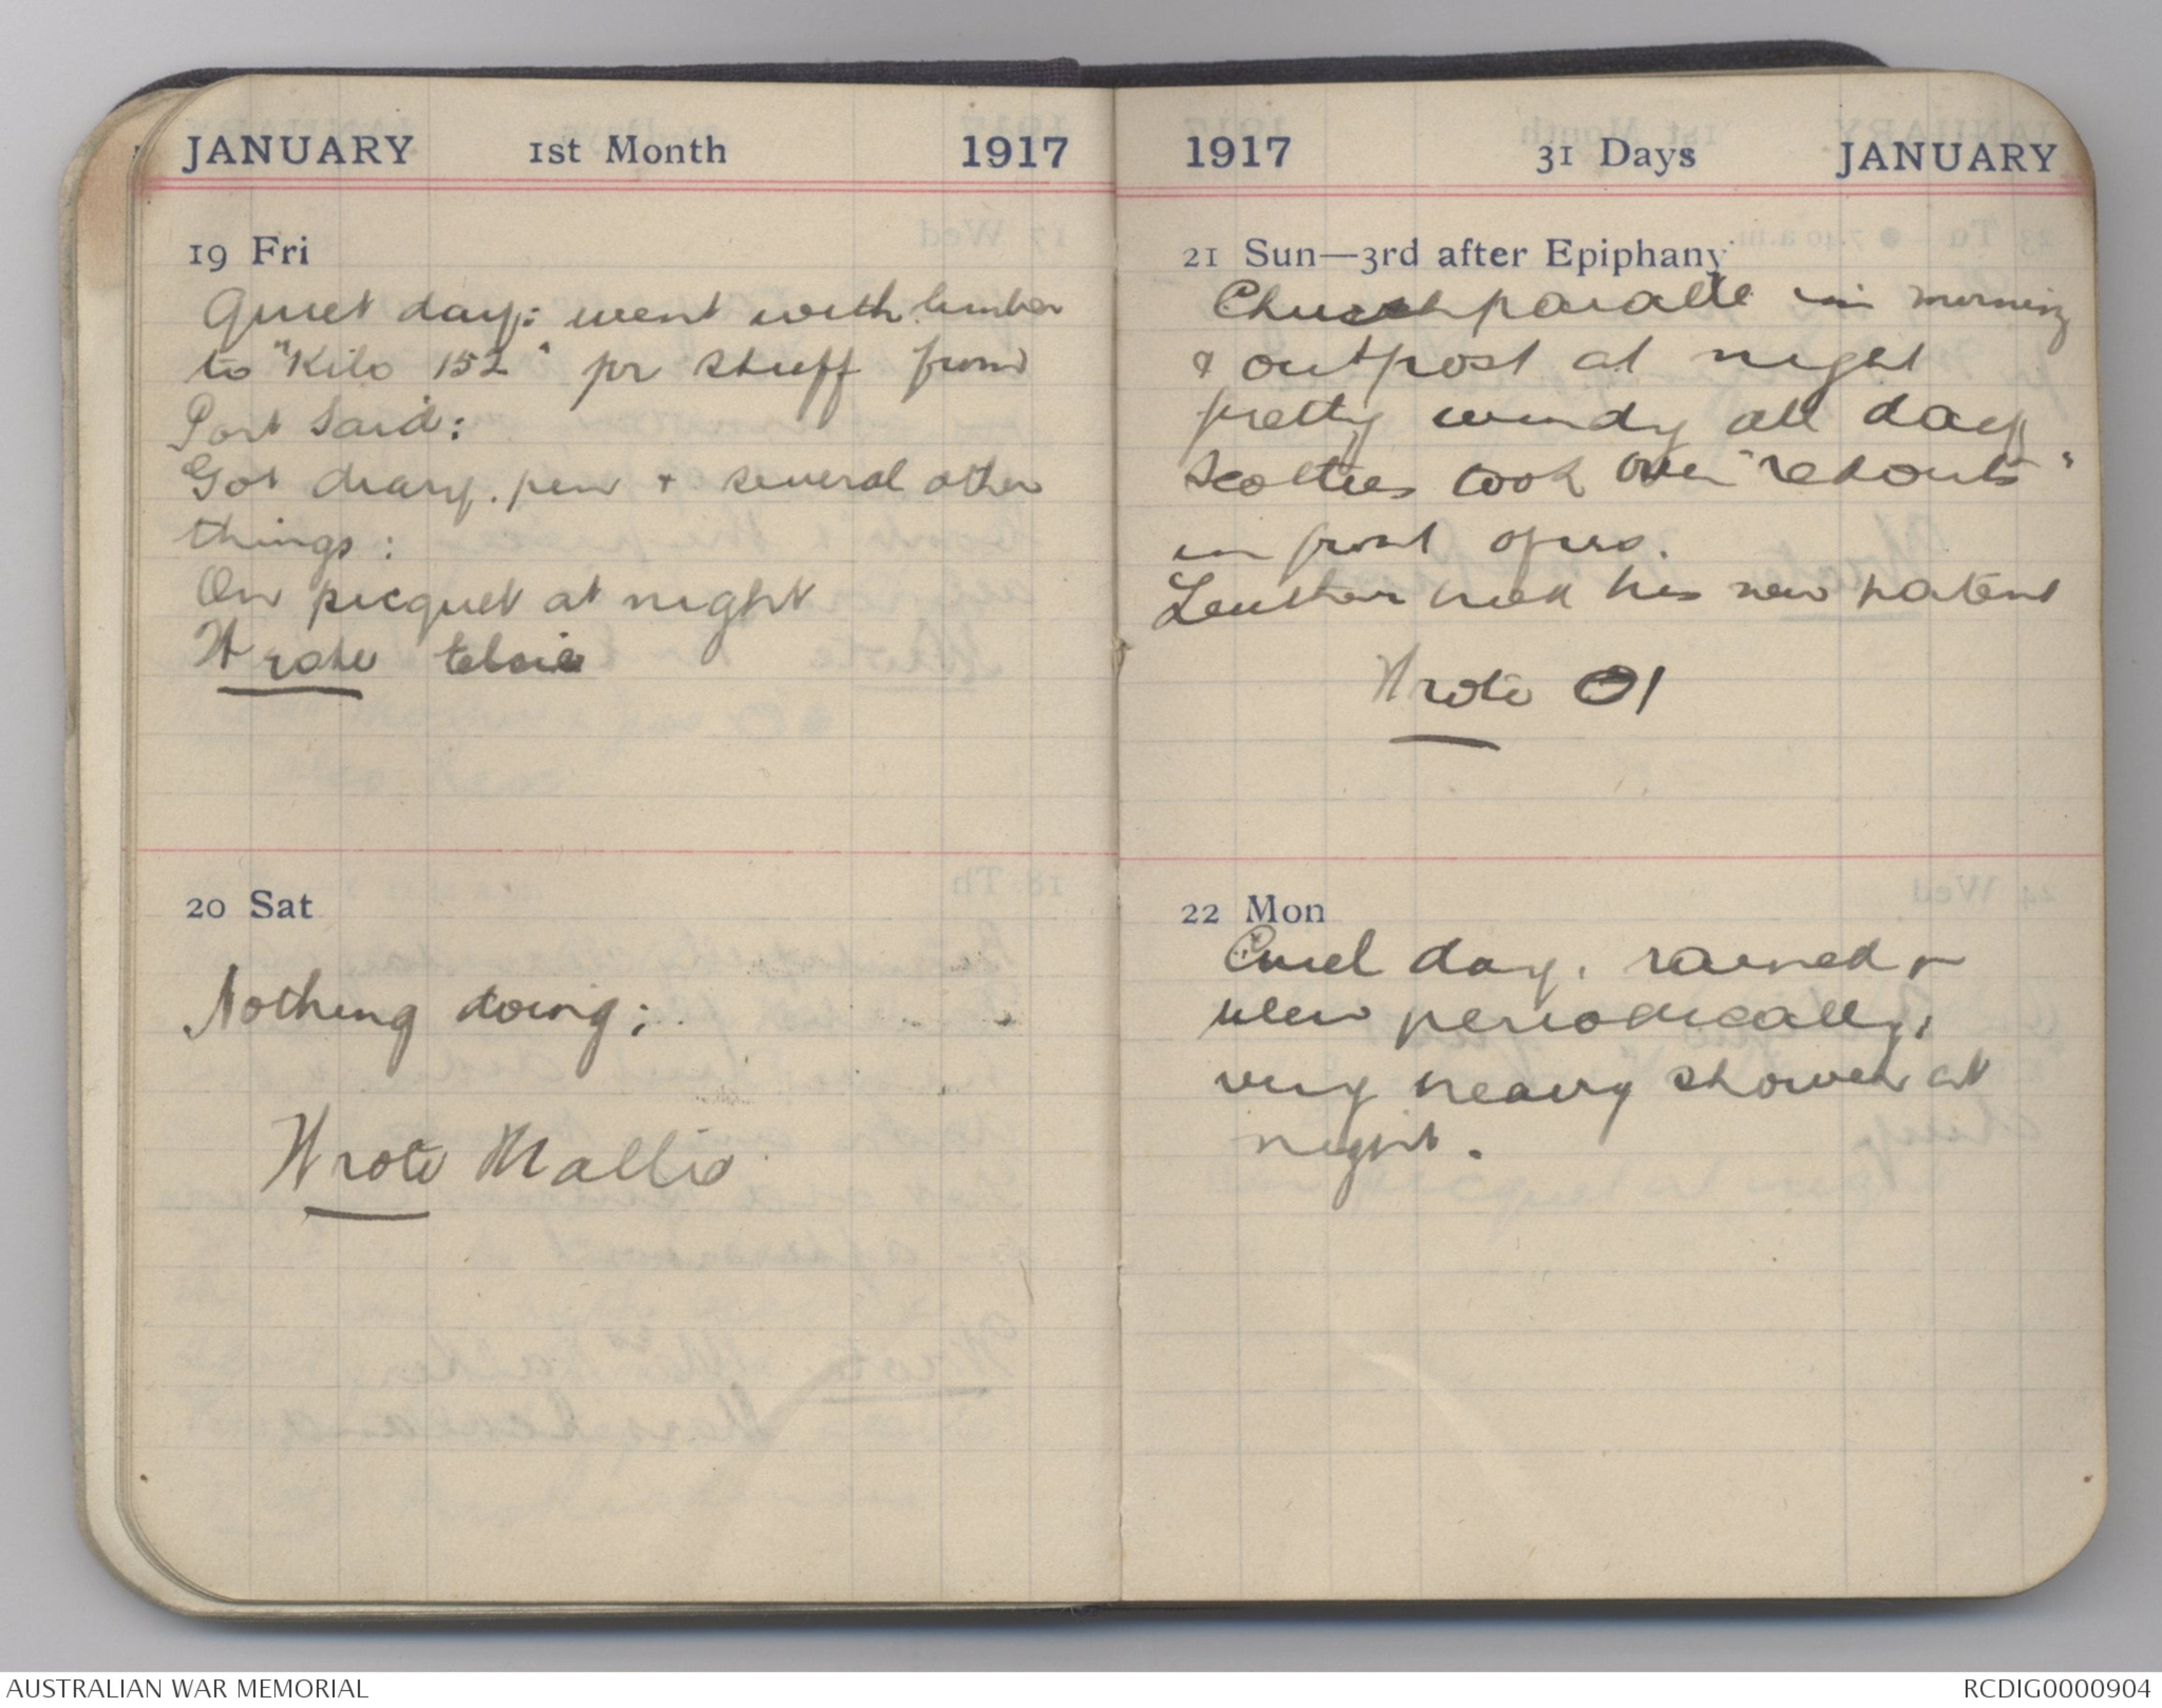 JANUARY 1st Month 1917
19 Fri
Quiet day: went with limber
to "Kilo 152" for stuff from
Port Said:
Got diary. pen + several other
things:
On picquet at night
Wrote
20 Sat
Nothing doing;
Wrote Mallie
1917 31 Days JANUARY
21 Sun—3rd after Epiphany
Church parade in morning
& outpost at night
pretty windy all day
Scotties took over "redouts"
in front of us.
tried his new patent
Wrote
22 Mon
Cruel day, rained &
blew periodically,
very heavy shower at
night.
AUSTRALIAN WAR MEMORIAL
RCDIG0000904